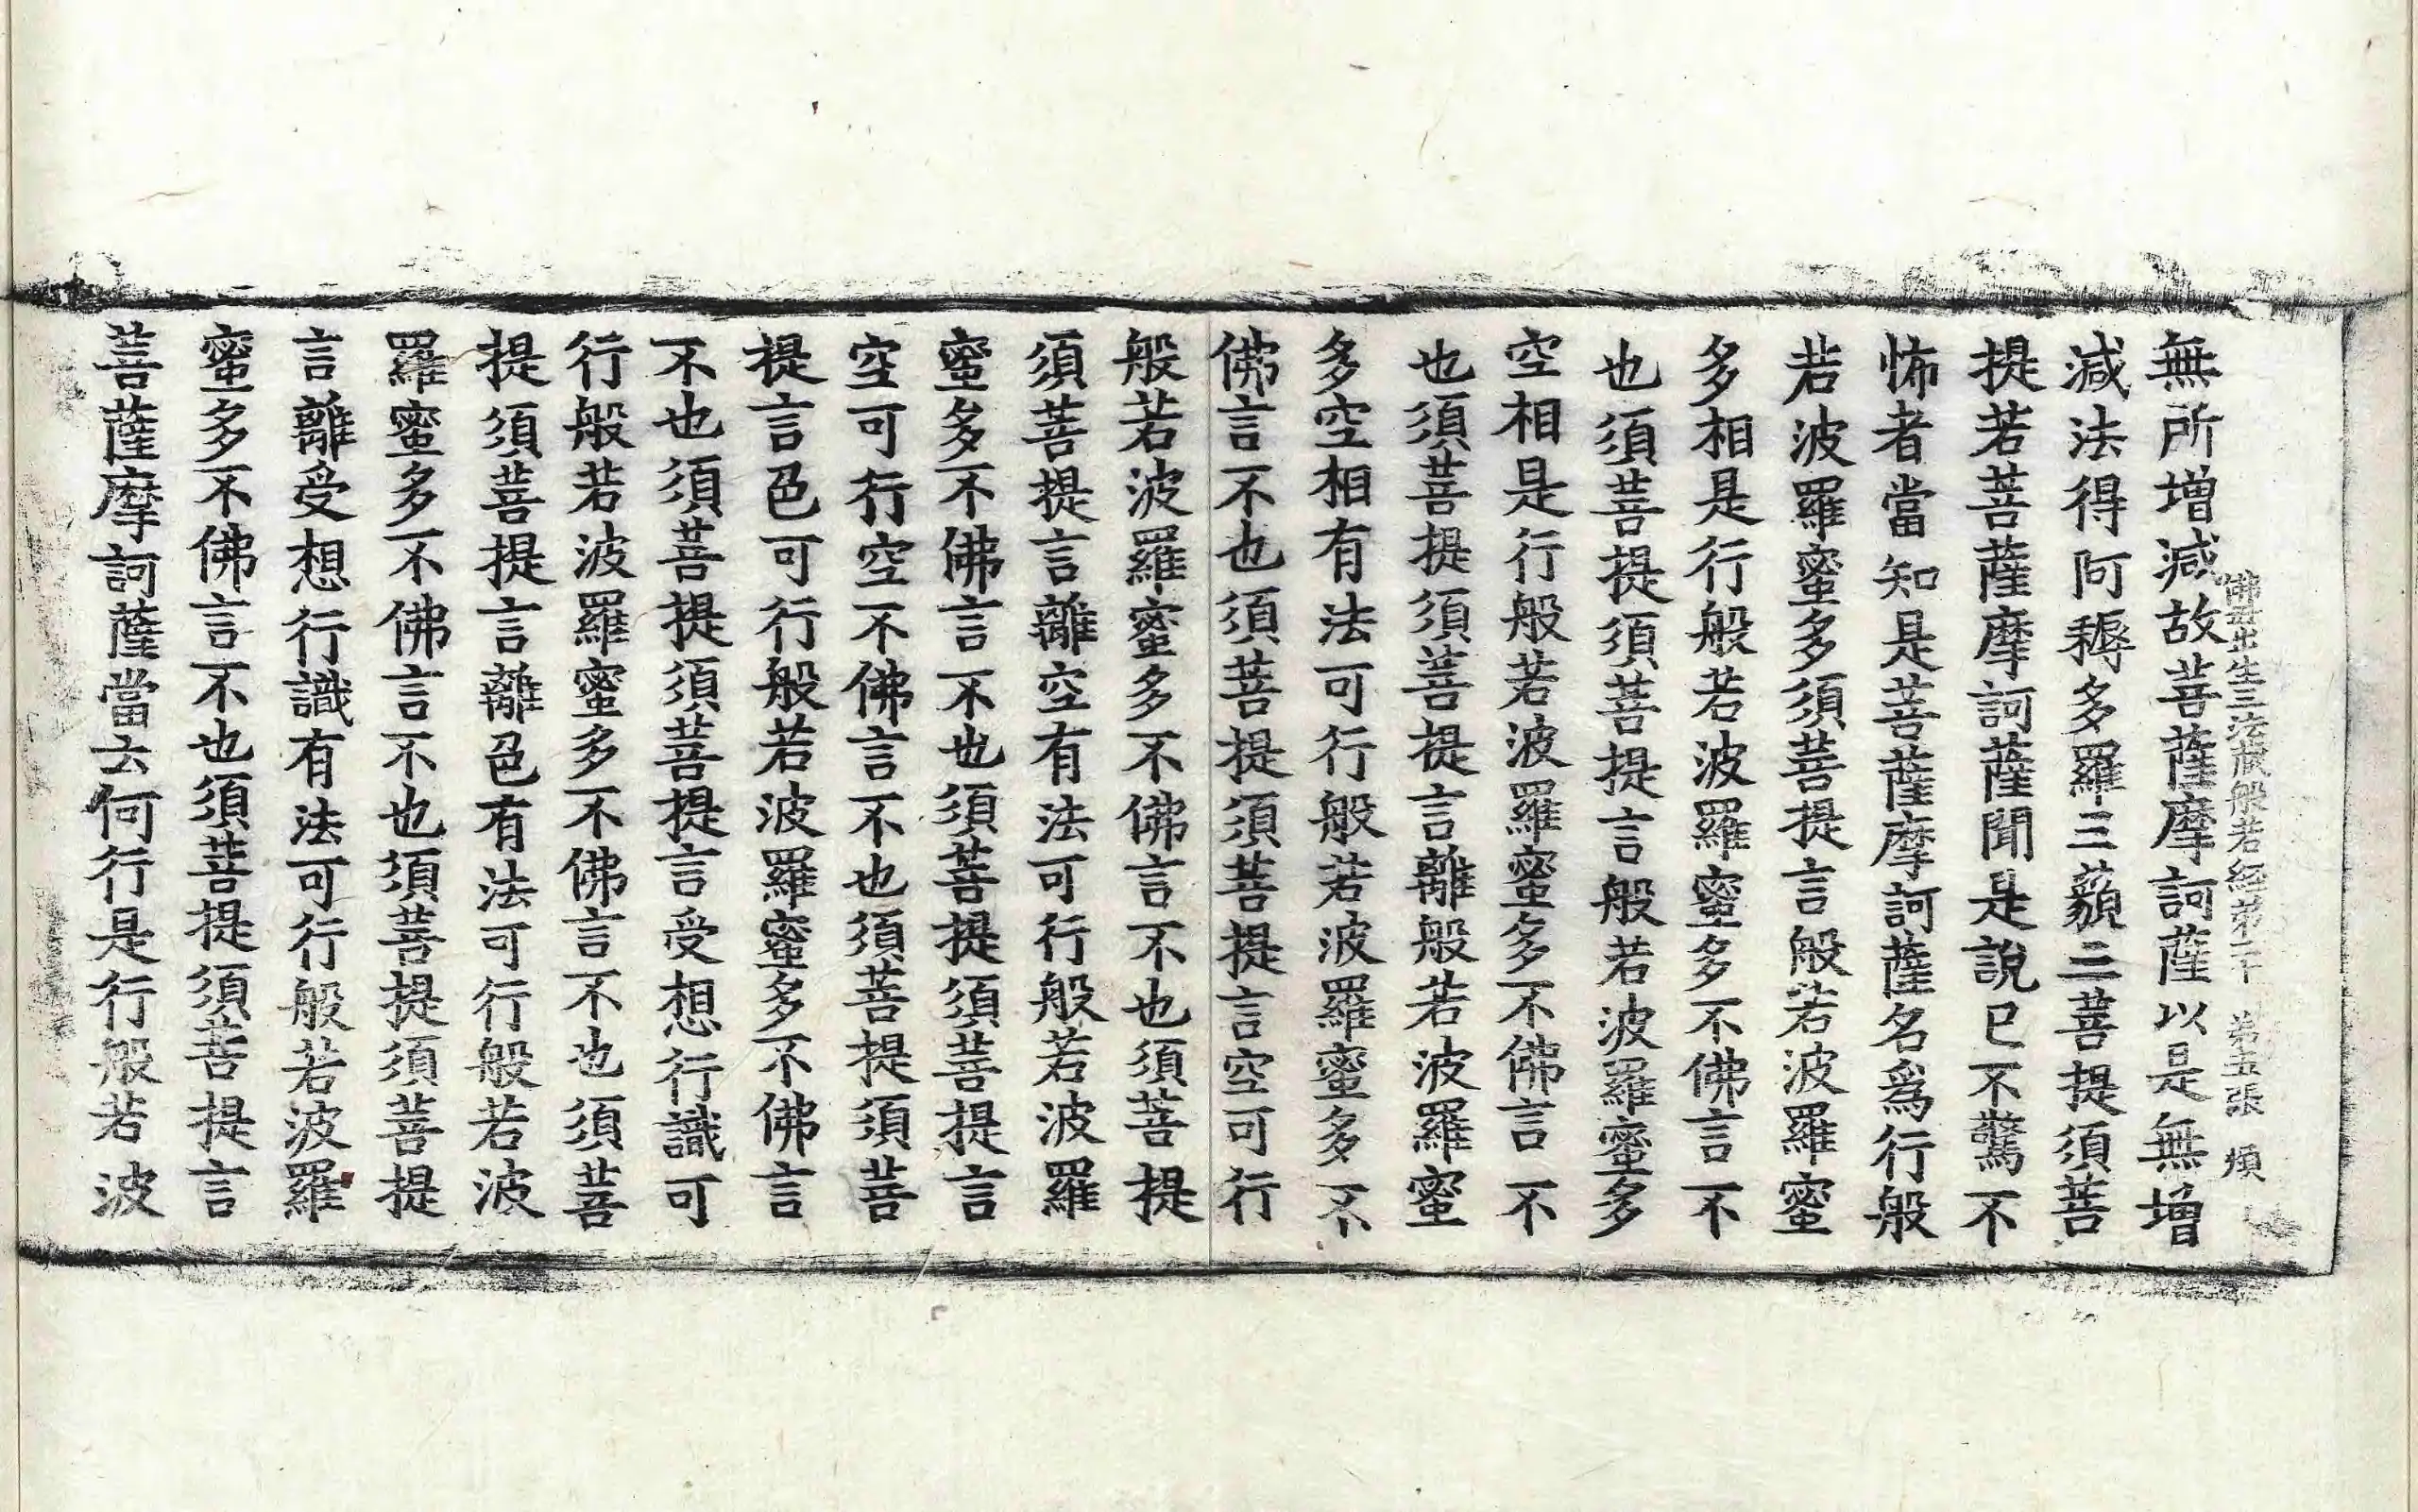 佛說出生三法藏般若經第二十 第五張 煩
無所增減故菩薩摩訶薩以是無增
減法得阿耨多羅三藐三菩提須菩
提若菩薩摩訶薩聞是說已不驚不
怖者當知是菩薩摩訶薩名爲行般
若波羅蜜多須菩提言般若波羅蜜
多相是行般若波羅蜜多不佛言不
也須菩提須菩提言般若波羅蜜多
空相是行般若波羅蜜多不佛言不
也須菩提須菩提言離般若波羅蜜
多空相有法可行般若波羅蜜多不
佛言不也須菩提須菩提言空可行
般若波羅蜜多不佛言不也須菩提
須菩提言離空有法可行般若波羅
蜜多不佛言不也須菩提須菩提言
空可行空不佛言不也須菩提須菩
提言色可行般若波羅蜜多不佛言
不也須菩提須菩提言受想行識可
行般若波羅蜜多不佛言不也須菩
提須菩提言離色有法可行般若波
羅蜜多不佛言不也須菩提須菩提
言離受想行識有法可行般若波羅
蜜多不佛言不也須菩提須菩提言
菩薩摩訶薩當云何行是行般若波